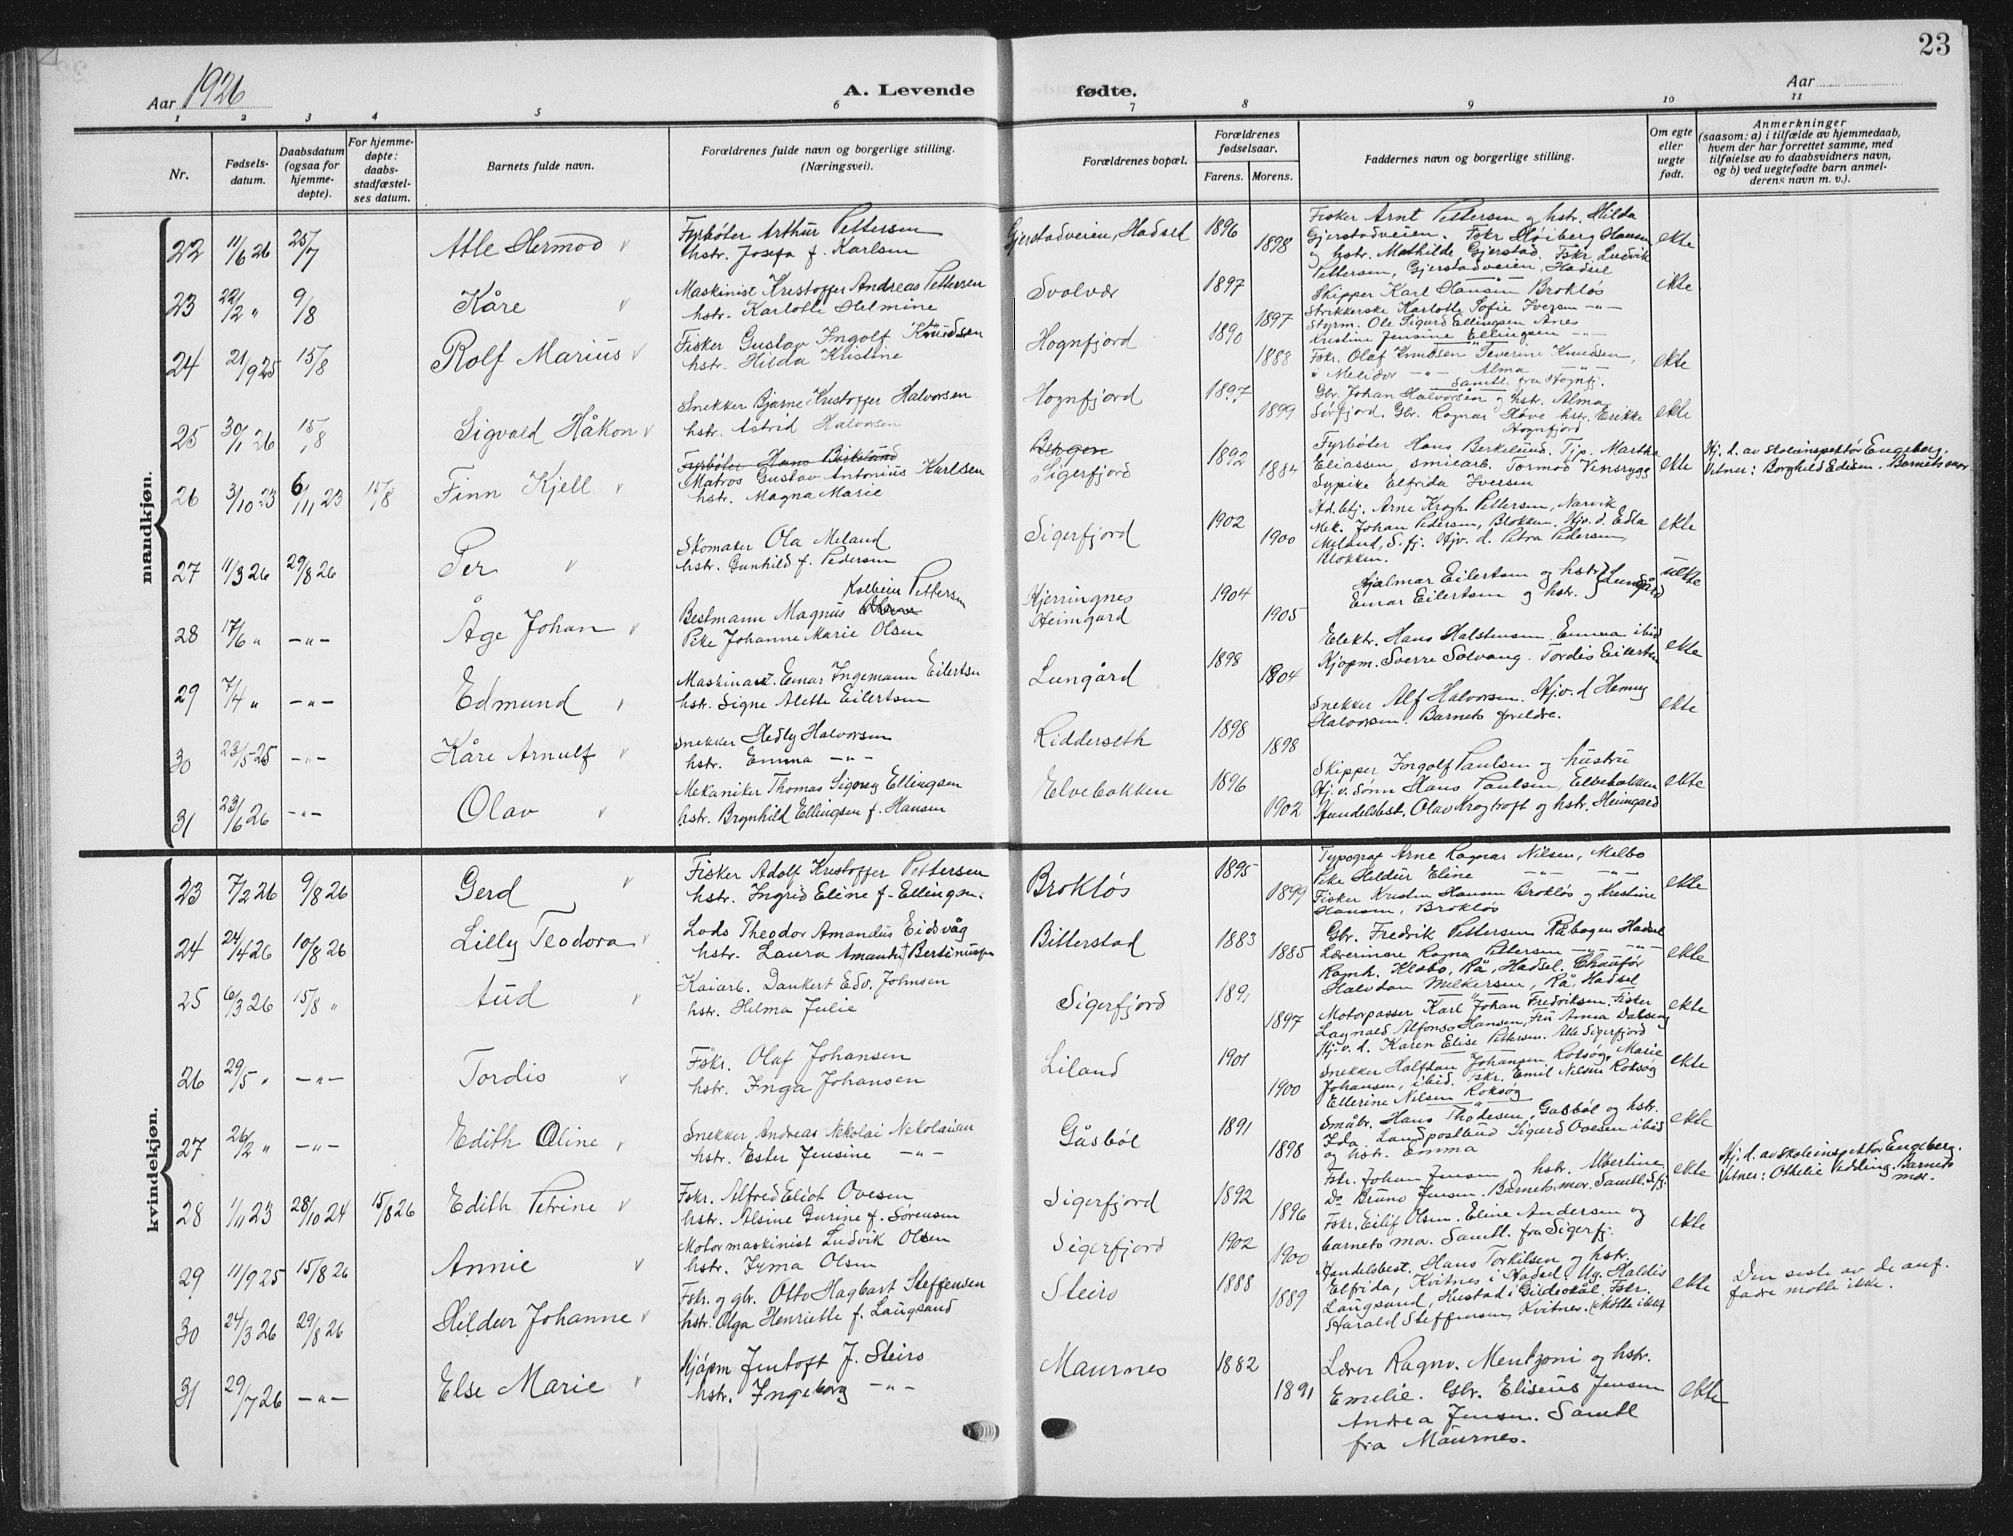 23
Aar 1926
A. Levende fødte.
Aar
1 2 3 4 5 6 7 8 9 10 11
Nr.
Fødsels-
datum.
Daabsdatum
(ogsaa for
hjemme-
døpte).
For hjemme-
døpte:
daabs-
stadfæstel-
ses datum.
Barnets fulde navn.
Forældrenes fulde navn og borgerlige stilling.
(Næringsvei).
Forældrenes bopæl.
Forældrenes
fødselsaar.
Farens. Morens.
Faddernes navn og borgerlige stilling.
Om egte
eller
uegte
født.
Anmerkninger
(saasom: a) i tilfælde av hjemmedaab,
hvem der har forrettet samme, med
tilføielse av to daabsvidners navn,
og b) ved uegtefødte barn anmel-
derens navn m. v.).
mandkjøn.
22 11/6 26 25/7 Atle Hermod
Fyrbøter Arthur Pettersen
hstr. Josefa f. Karlsen
Gjerstadveien, Hadsel 1896 1898
Fisker Arnt Pettersen og hstr. Hilda
Gjerstadveien. Fskr Høiberg Hansen
og hstr. Mathilde Gjerstad. Fskr. Ludvik
Pettersen, Gjerstadveien, Hadsel
ekte
23 22/2 " 9/8 Kåre
Maskinist Kristoffer Andreas Pettersen
hstr. Karlotte Helmine
Svolvær 1897 1897
Skipper Karl Hansen Brokløs
Strikkerske Karlotte Sofie Iversen -"-
Styrm. Ole Sigurd Ellingsen Anes
Kristine Jensine Ellingsen -"-
ekte
24 21/9 25 15/8 Rolf Marius
Fisker Gustav Ingolf Knudsen
hstr. Hilda Kristine
Hognfjord 1890 1888
Fskr. Olaf Knudsen Severine Knudsen,
" Melidor -"- Alma -"-
Samtl. fra Hognfj.
ekte
25 30/1 26 15/8 Sigvald Håkon
Snekker Bjarne Kristoffer Halvorsen
hstr. Astrid Halvorsen
Hognfjord 1897 1899
Gbr. Johan Halvorsen og hstr. Alma
Sørfjord. Gbr. Ragnar Høve hstr. Erikke
Hognfjord
ekte
26 3/10 23 6/11 23 15/8 Finn Kjell
Fyrbøter Hans Birkelund
Matros Gustav Antonius Karlsen
hstr. Magna Marie
Bergen
Sigerfjord 1892 1884
Fyrbøter Hans Berkelund. Tjp. Martha
Eliassen, smilarb. Tormod Vinsrygg
Sypike Elfrida Iversen
ekte
Hj. d. av skoleinspektør Engeberg.
Vitner: Borghild Edisen. Barnets mor
27 11/3 26 29/8 26 Per
Skomaker Ola Meland
hstr. Gunhild f. Pedersen
Sigerfjord 1902 1900
Ad.btj. Arne Krogh Pettersen, Narvik
Mek. Johan Pedersen, Blokken. Hjv. d. Edla
Meland, S.fj. Hjv. d. Petra Pedersen,
Blokken.
ekte
28 17/6 " -"- Åge Johan
Bestmann Magnus Kolbein Pettersen
Pike Johanne Marie Olsen
Kjerringnes
Heimgard 1904 1905
Hjalmar Eilertsen og hstr.
Einar Eilertsen og hstr. } Lungård
uekte
29 7/4 " -"- Edmund
Maskinast. Einar Ingemann Eilertsen
hstr. Signe Alette Eilertsen
Lungård 1898 1904
Elektr. Hans Halstensen. Emma ibid
Kjøpm. Sverre Solvang. Tordis Eilertsen
ekte
30 23/5-25 -"- Kåre Arnulf
Snekker Hedly Halvorsen
hstr. Emma -"-
Ridderseth 1898 1898
Snekker Alf Halvorsen. Hj.v.d Henny
Halvorsen. Barnets foreldre.
ekte
31 23/6 26 -"- Olav
Mekaniker Thomas Signey Ellingsen
hstr. Brynhild Ellingsen f. Hansen
Elvebakken 1896 1902
Skipper Ingolf Paulsen og hustru
Hj. v. sønn Hans Paulsen, Elvebakken
Handelsbest. Olav Krogtoft og hstr. Heimgard
ekte
kvindekjøn.
23 7/2 26 9/8 26 Gerd
Fisker Adolf Kristoffer Pettersen
hstr. Ingrid Eline f. Ellingsen.
Brokløs 1895 1899
Typograf Arne Ragnar Nilsen, Melbo
Pike Hildur Eline -"- -"-
Fisker Kristen Hansen Brokløs og Kristine
Hansen, Brokløs
ekte
24 24/4 26 10/8 26 Lilly Teodora
Lods Theodor Amandus Eidsvåg
hstr. Laura Amanda f Bertinussen
Bitterstad 1883 1885
Gbr. Fredrik Pettersen Råbogen Hadsel
Lærerinne Ragna Pettersen -"- -"-
Ragnh. Klebo, Rå, Hadsel. Chaufør
Halvdan Milkersen, Rå, Hadsel
ekte
25 6/3 26 15/8 " Aud
Kaiarb. Dankert Edv. Johnsen
hstr. Helma Julie
Sigerfjord 1891 1897
Motorpasser Karl Johan Fredriksen. Fisker
Lagnald Alfonso Hansen, Fru Anna Dalseng
Hj.v.d. Karen Elise Pettersen. Alle Sigerfjord
ekte
26 29/5 " -"- Tordis
Fskr. Olaf Johansen
hstr. Inga Johansen
Liland 1901 1900
Snekker Halfdan Johansen Roksøy, Marie
Johansen, ibid. Fskr. Emil Nilsen Roksøy
Ellerine Nilsen Roksøy
ekte
27 26/2 " -"- Edith Oline
Snekker Andreas Nikolai Nikolaisen
hstr. Ester Jensine -"-
Gåsbøl 1891 1898
Småbr. Hans Thodesen, Gåsbøl og hstr.
Ida. Landpostbud Sigurd Ovesen ibid
og hstr. Emma
ekte
28 1/11 23 28/10 24 15/8 26 Edith Petrine
Fskr. Alfred Eliot Ovesen
hstr. Alsine Gurine f. Sørensen
Sigerfjord 1892 1896
Fskr. Johan Jensen og hstr. Albertine
Do Bruno Jensen. Barnets mor. Samtl. S.fj.
ekte
Hj. d. av skoleinspektør Engeberg.
Vitner: Ottelie Vedling. Barnets
mor.
29 11/9 25 15/8 26 Annie
Motormaskinist Ludvik Olsen
hstr. Irma Olsen
Sigerfjord 1902 1900
Fskr. Eilif Olsen. Eline Andersen og
barnets mor. Samtl. fra Sigerfj.
ekte
30 24/3 26 29/8 26 Hildur Johanne
Fskr. og gbr. Otto Hagbart Steffensen
hstr. Olga Henriette f. Langsand
Steiro 1888 1889
Handelsbest. Hans Torkilsen og hstr.
Elfrida, Kvitnes i Hadsel. Ug. Haldis
Langsand, Hustad i Gildeskål. Fskr.
Harald Steffensen, Kvitnes. (Møtte ikke)
ekte
Den siste av de anf.
fadre møtte ikke.
31 29/7 26 -"- Else Marie
Kjøpm Jentoft J. Steiro
hstr. Ingeborg -"-
Maurnes 1882 1891
Lærer Ragnv. Mentzoni og hstr.
Emelie. Gbr. Eliseus Jensen
Andrea Jensen. Samtl
fra Maurnes.
ekte